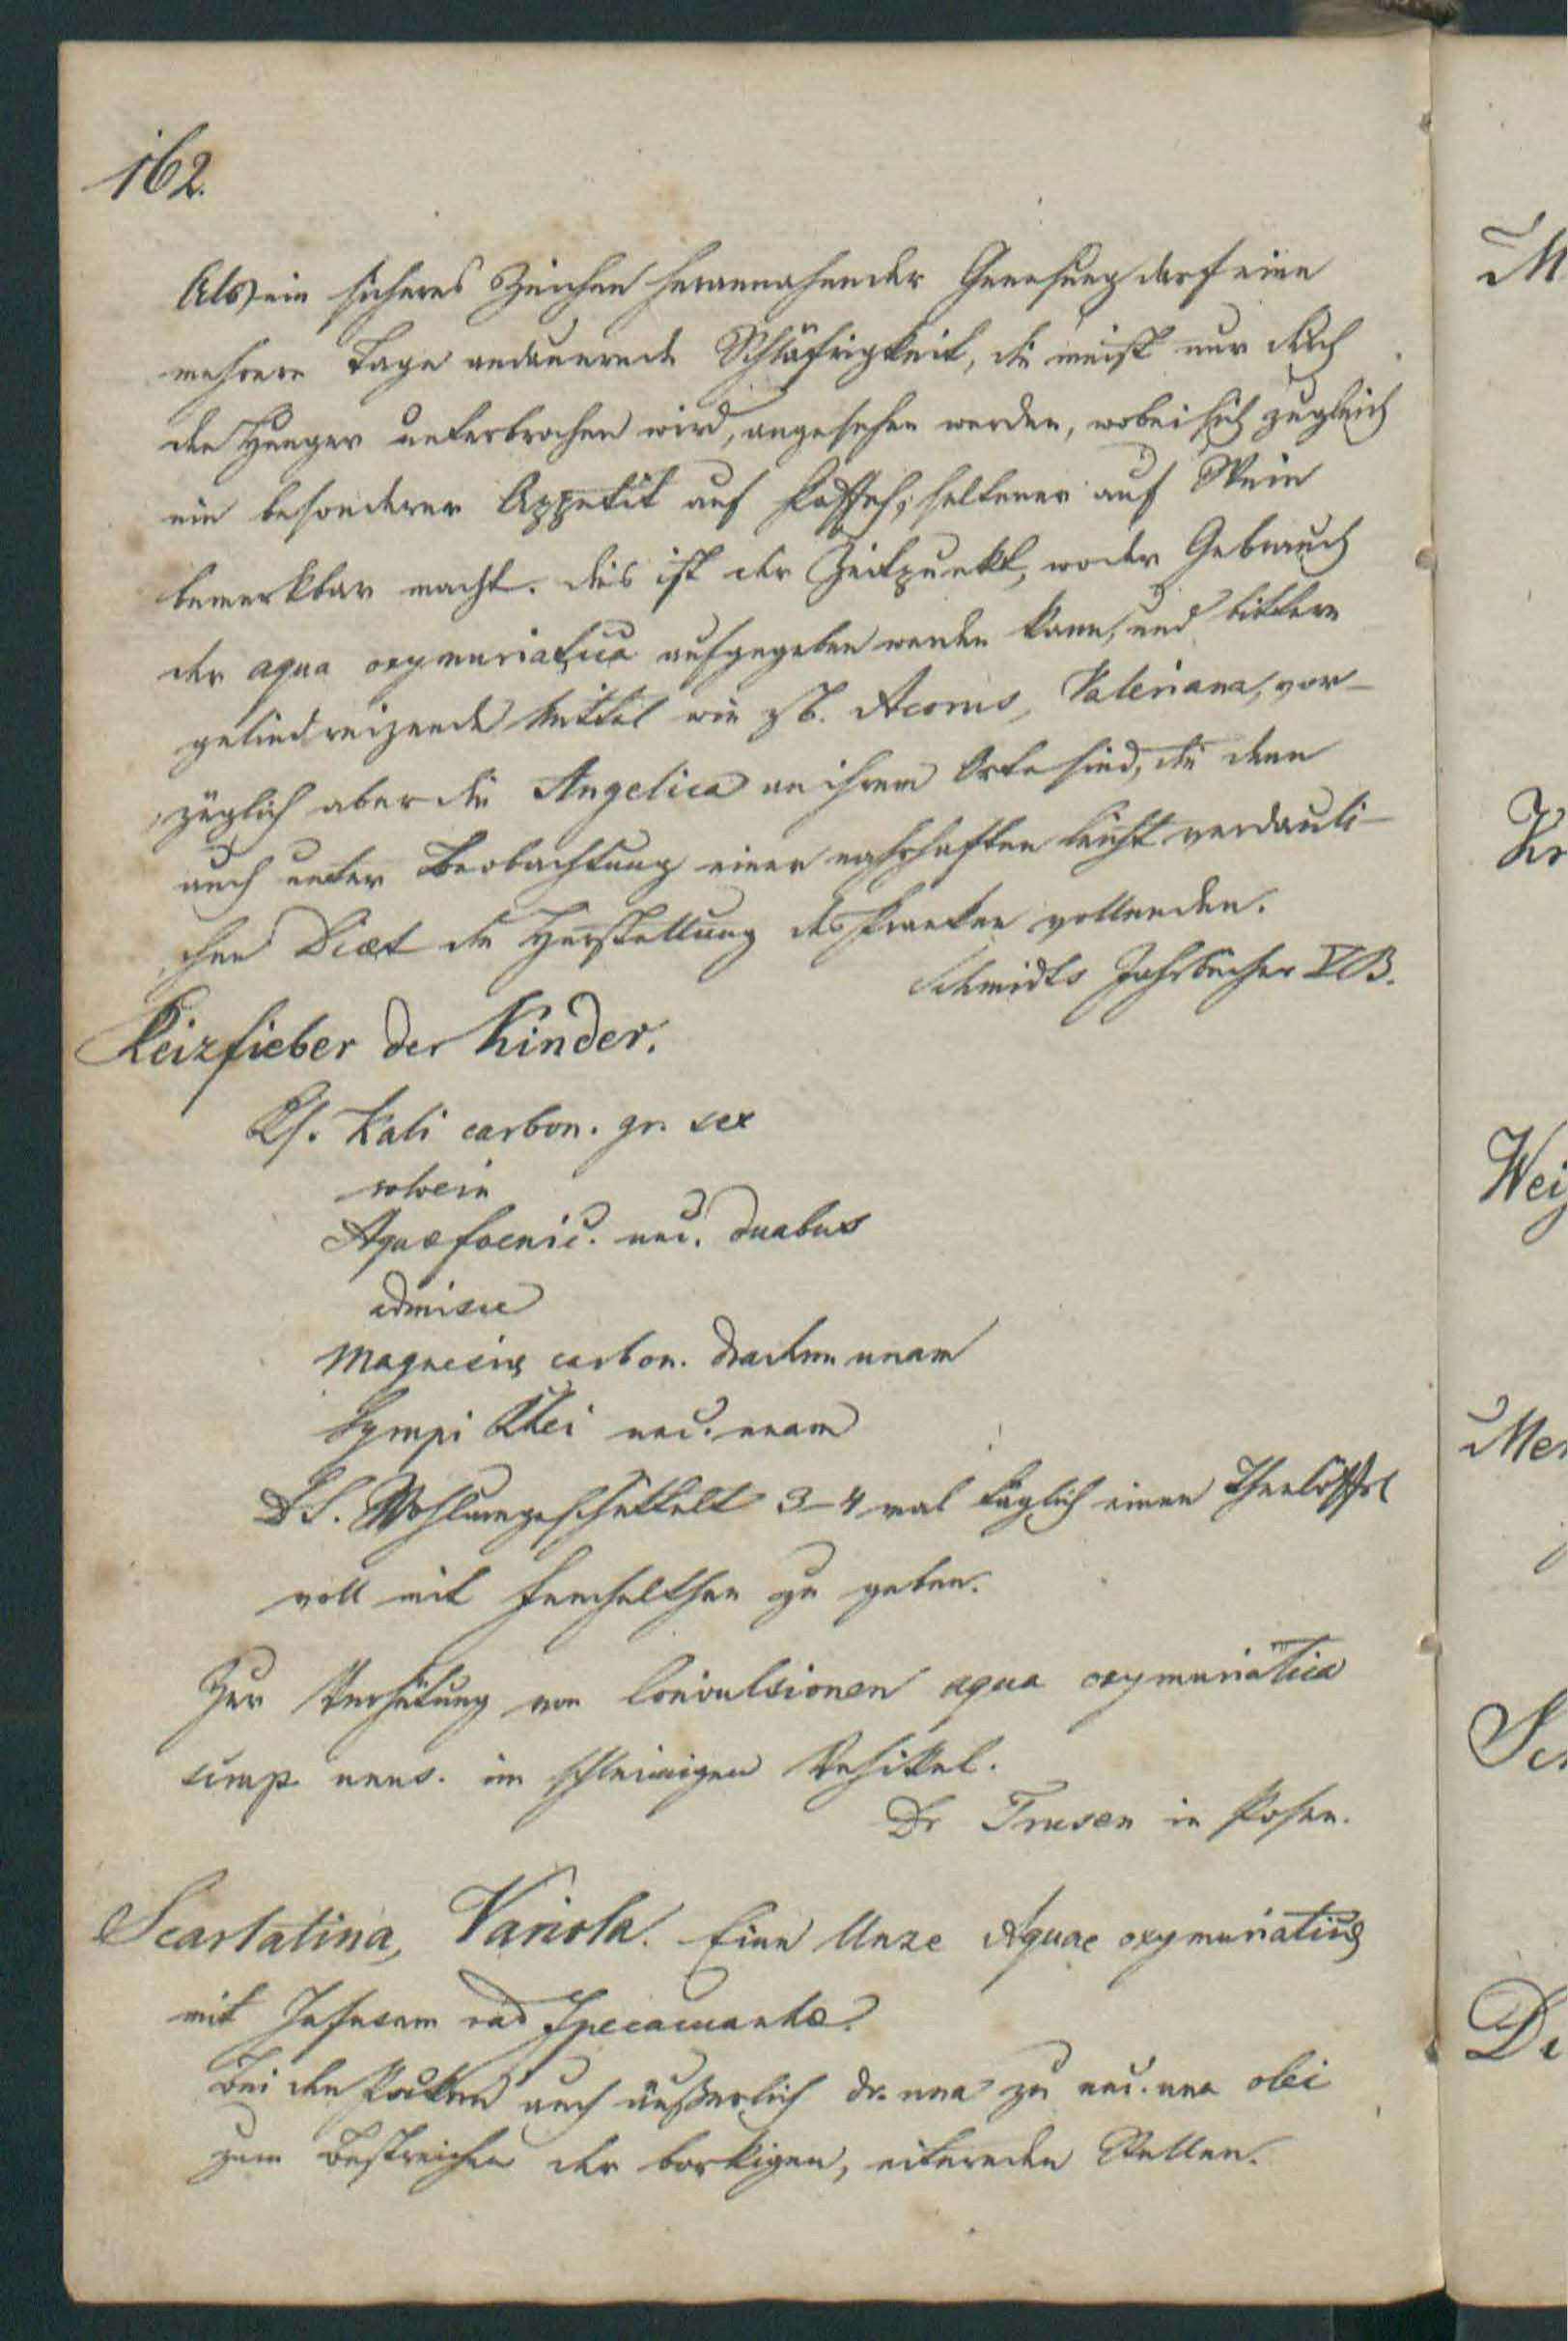 162.
Als ein sicheres Zeichen herannahender Genesung darf eine
mehrere Tage andauernde Schläfrigkeit, die meist nur durch
den Hunger unterbrochen wird, angesehen werden, wobei sich zugleich
ein besonderer Appetit auf Kaffeh, seltener auf Wein
bemerkbar macht. Dies ist der Zeitpunkt, wo der Gebrauch
der aqua oxymuriatica aufgegeben werden kann, und bittere
gelind reizende Mittel wie zB. Acorus, Valeriana, vor-
züglich aber die Angelica an ihrem Orte sind, die denn
auch unter Beobachtung einer nahrhaften leicht verdauli-
chen Diæt die Herstellung des Kranken vollenden.
Schmidts Jahrbücher V B.
Reizfieber der Kinder.
Rf. Kali carbon. gr. sex
solve in
Aquæ foenic. unc. duabus
admisce
Magnesiæ carbon. drachm unam
Syrupi Rhei unc. unam
DS. Wohlumgeschüttelt 3-4 mal täglich einen Theelöffel
voll mit Fenchelthee zu geben.
Zur Verhütung von Convulsionen aqua oxymuriatica
im schleimigen Vehikel.
Dr Trusen in Posen.
Scarlatina, Variola. Eine Unze Aquae oxymuriaticæ
mit Infusum rad Ipecacuanhæ.
Bei den Pocken auch äußerlich dr. una zu unc. una olei
zum Bestreichen der borkigen, eiternden Stellen.
M
Kr
Wei
Mer
Sc
De